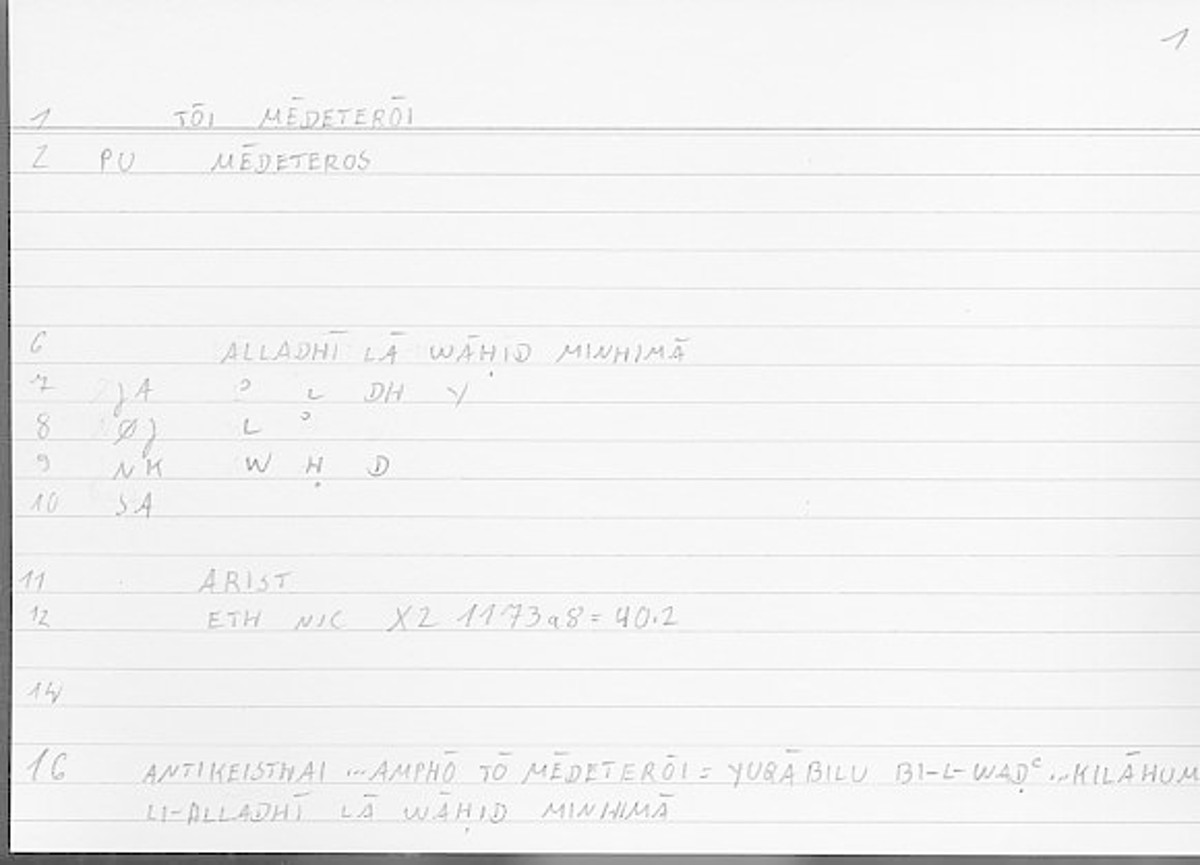 1
1 TŌI MĒDETERŌI
2 PU MĒDETEROS
6 ALLADHĪ LĀ WĀḤID MINHIMĀ
7 JA ʾ L DH Y
8 ØJ L ʾ
9 NK W Ḥ D
10 SA
11 ARIST
12 ETH NIC X2 1173a8 = 40.2
14
16 ANTIKEISTHAI ...AMPHŌ TŌ MĒDETERŌI = YUQĀBILU BI-L-WAḌʿ ...KILĀHUM
LI-ALLADHĪ LĀ WĀḤID MINHIMĀ